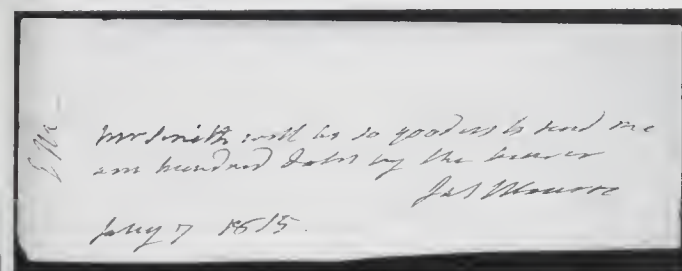 Mr Smith will be so good as to send me
one hundred dolrs by the bearer
Jas Monroe
Jany 7 1815.